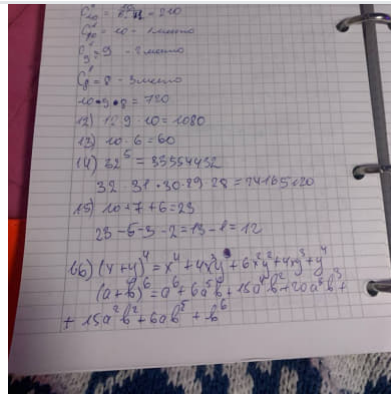 = 210
C¹₁₀ = 10 - 1 место
C¹₉ = 9 - 2 место
C¹₈ = 8 - 3 место
10 • 9 • 8 = 720
12) 12 · 9 · 10 = 1080
13) 10 · 6 = 60
14) 32⁵ = 33554432
32 · 31 · 30 · 29 · 28 = 24165120
15) 10 + 7 + 6 = 23
23 - 5 - 3 - 2 = 13 - 1 = 12
66) (x + y)⁴ = x⁴ + 4x³y + 6x²y² + 4xy³ + y⁴
(a + b)⁶ = a⁶ + 6a⁵b + 15a⁴b² + 20a³b³ +
+ 15a²b² + 6ab⁵ + b⁶